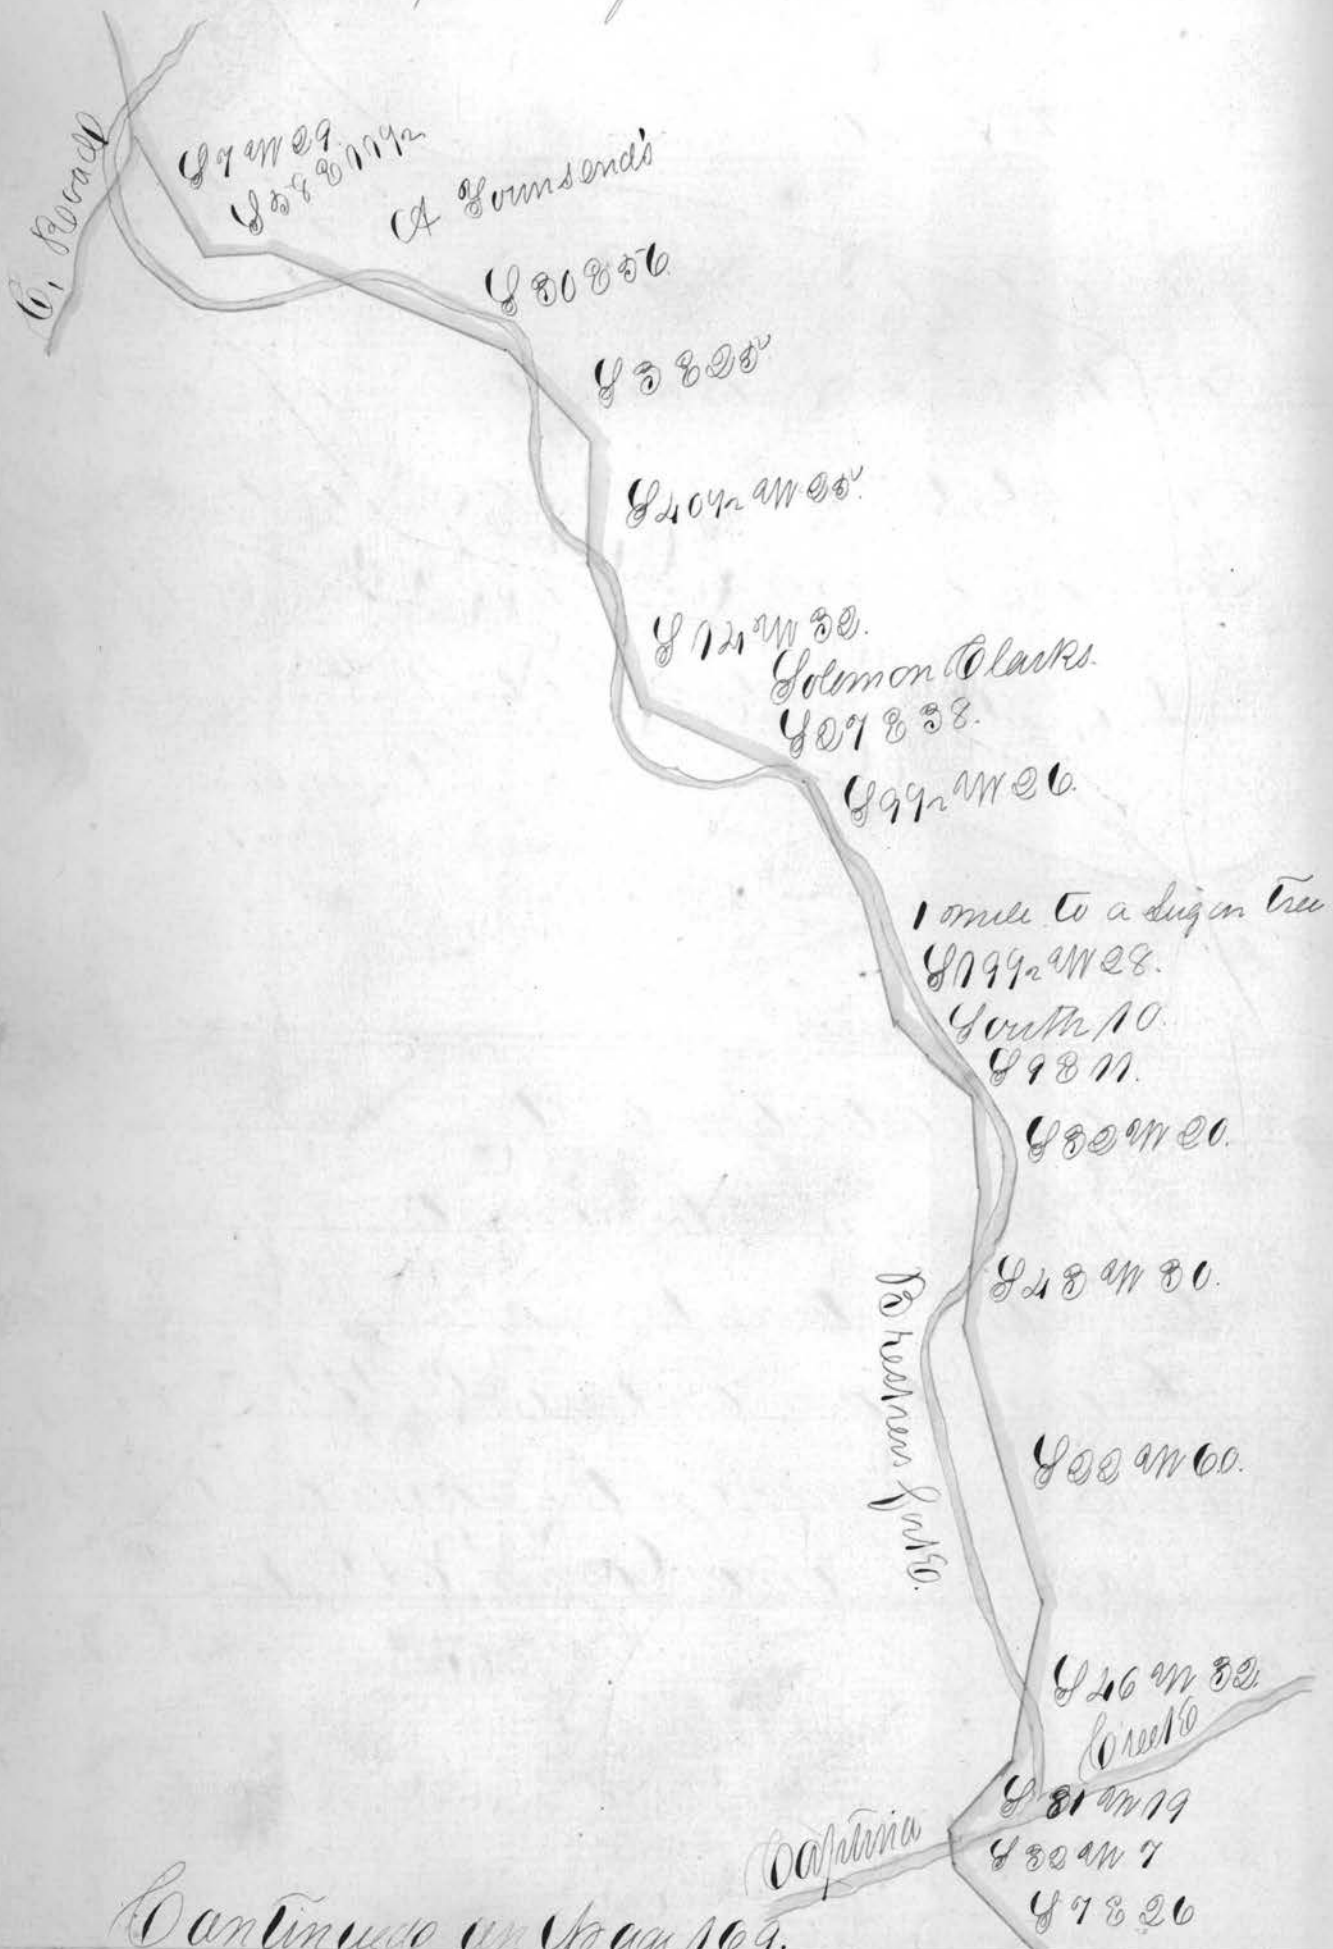 C. Road
S 7 W 29.
S 58 E 11 1/2
A Townsend's
S 30 E 56.
S 3 E 25
S 40 1/2 W 25.
S 14 W 32.
Solomon Clarks.
S 27 E 38.
S 9 1/2 W 26.
1 mile to a Sugar Tree
S 19 1/2 W 28.
South 10.
S 9 E 11.
S 32 W 20.
S 43 W 30.
fork.
S 22 W 60.
S 46 W 32
Creek
S 31 W 19
Captina
S 32 W 7
S 7 E 26
Continued on Page 169.